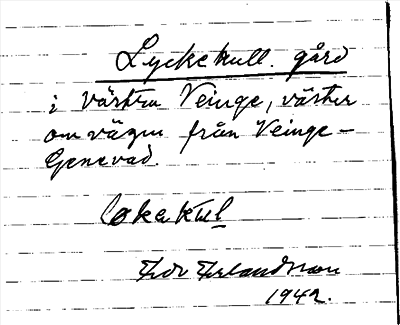 Lyckekull. gård
i västra Veinge, väster
om vägen från Veinge -
Genevad.
løkakul
Erlandsson
1942.